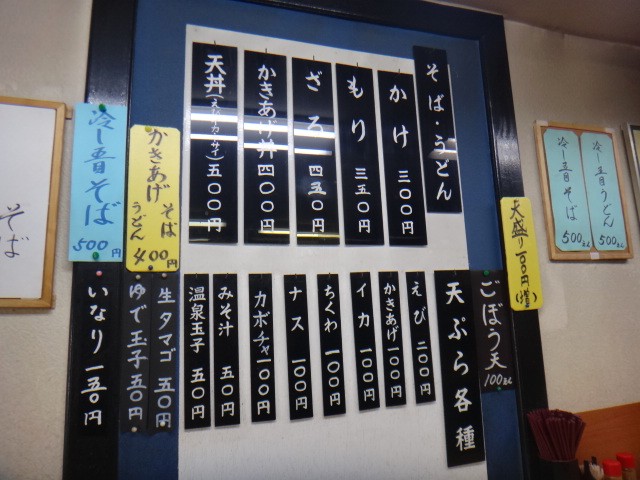 そば・うどん
かけ 三〇〇円
もり 三五〇円
ざる 四五〇円
かきあげ丼 四〇〇円
天丼(えび・イカ・ヤサイ) 五〇〇円
大盛り100円(増)
天ぷら各種
えび 二〇〇円
かきあげ 一〇〇円
イカ 一〇〇円
ちくわ 一〇〇円
ナス 一〇〇円
カボチャ 一〇〇円
ごぼう天 100えん
みそ汁 五〇円
温泉玉子 五〇円
生タマゴ 五〇円
ゆで玉子 五〇円
いなり 一五〇円
かきあげ そば うどん 400円
冷し五目そば 500円
冷し五目うどん 500えん
冷し五目そば 500えん
そば